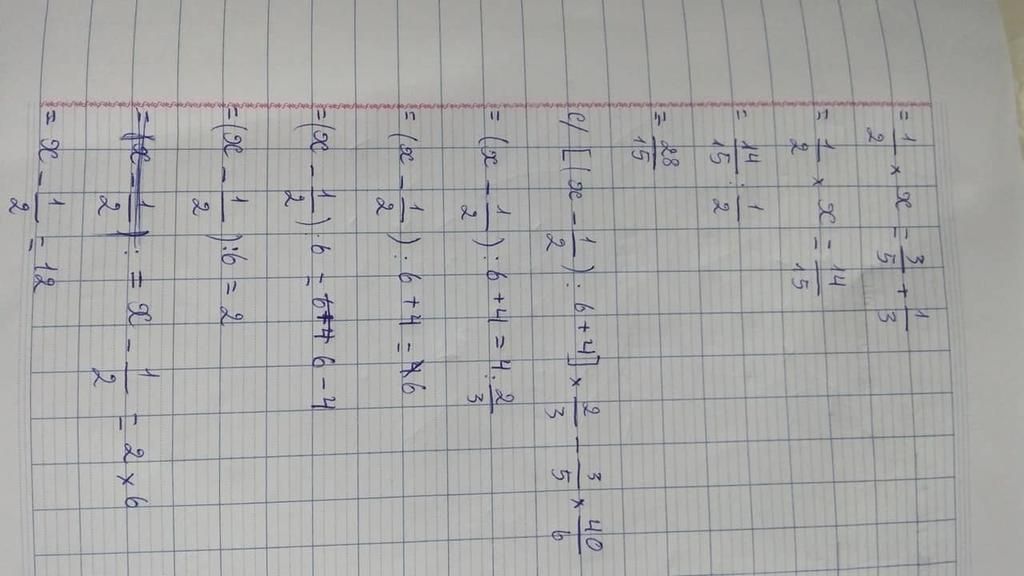 = 1/2 × x = 3/5 + 1/3
= 1/2 × x = 14/15
= 14/15 : 1/2
= 28/15
c/ [(x - 1/2) : 6 + 4] × 2/3 = 3/5 × 40/6
= (x - 1/2) : 6 + 4 = 4 : 2/3
= (x - 1/2) : 6 + 4 = 6
= (x - 1/2) : 6 = 6 - 4
= (x - 1/2) : 6 = 2
= x - 1/2 = 2 × 6
= x - 1/2 = 12